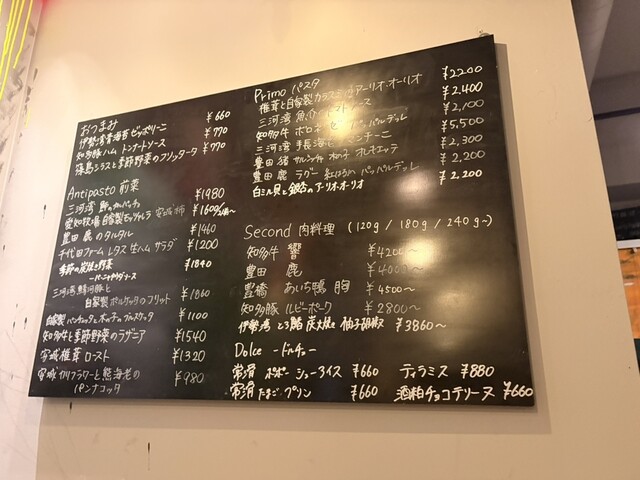 おつまみ
伊勢湾産青海苔ゼッポリーニ ¥660
知多豚ハム トンナートソース ¥770
篠島シラスと季節野菜のフリッタータ ¥770
Antipasto 前菜
三河湾 鮮のカルパッチョ ¥1980
愛知牧場自家製モッツァレラ 安城 柿 ¥1600
豊田 鹿のタルタル ¥1460
千代田ファーム レタス 生ハム サラダ ¥1200
季節の炭焼き野菜 ¥1840
ーバーニャカウダソース
三河湾 鯖河豚と
自家製ポルケッタのフリット ¥1860
自家製パンチェッタと ブルスケッタ ¥1100
知多牛と季節野菜のラザニア ¥1540
安城 椎茸 ロースト ¥1320
安城 カリフラワーと熊海老の
パンナコッタ ¥980
Primo パスタ
椎茸と自家製カラスミのアーリオ・オーリオ ¥2200
三河湾 魚介 トマトソース ¥2,400
知多牛 ボロネーゼ パッパルデッレ ¥2,100
三河湾 手長海老 ¥5,500
豊田 猪 サルシッチャ 柚子 オレキエッテ ¥2,300
豊田 鹿 ラグー 紅はるか パッパルデッレ ¥2,200
白ミル貝と のアーリオ・オーリオ ¥2,200
Second 肉料理 (120g / 180g / 240g~)
知多牛 響 ¥4200~
豊田 鹿 ¥4000~
豊橋 あいち鴨 胸 ¥4500~
知多豚 ルビーポーク ¥2800~
伊勢湾 とろ鯖 炭火焼き 柚子胡椒 ¥3860~
Dolce ードルチェー
常滑 シューアイス ¥660 ティラミス ¥880
常滑 たまご プリン ¥660 酒粕チョコテリーヌ ¥660